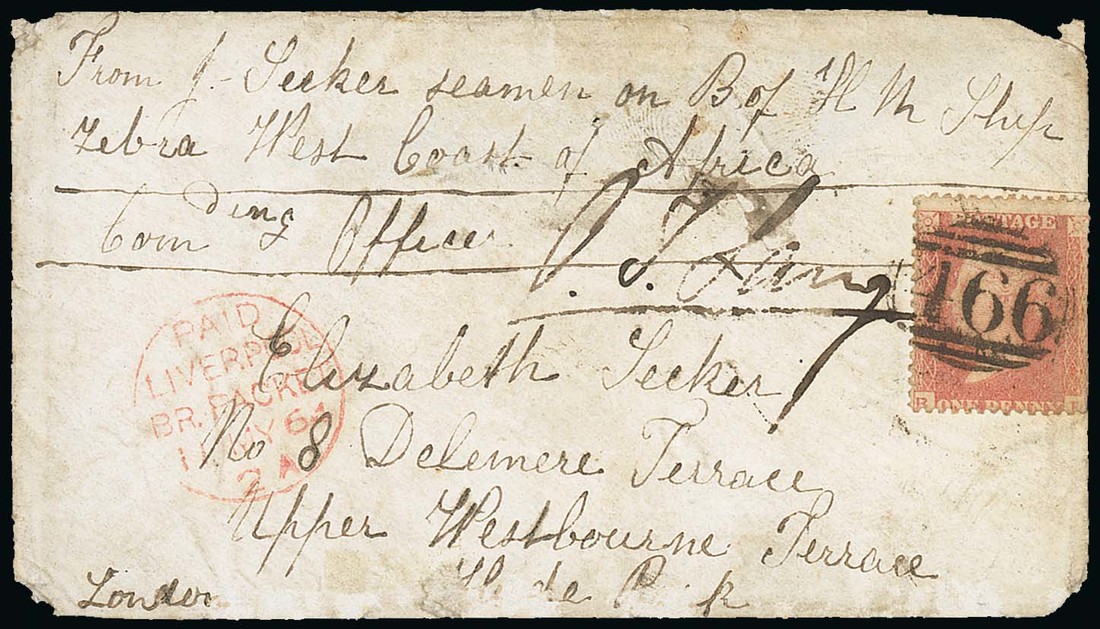 From J. Seeker seamen on B of H M Ship
Zebra West Coast of Africa
Com ding Officer
Elizabeth Seeker
No 8 Delemere Terrace
Upper Westbourne Terrace
Hyde Park
London
PAID
LIVERPOOL
BR. PACKET
64
2 A
POSTAGE
466
ONE PENNY